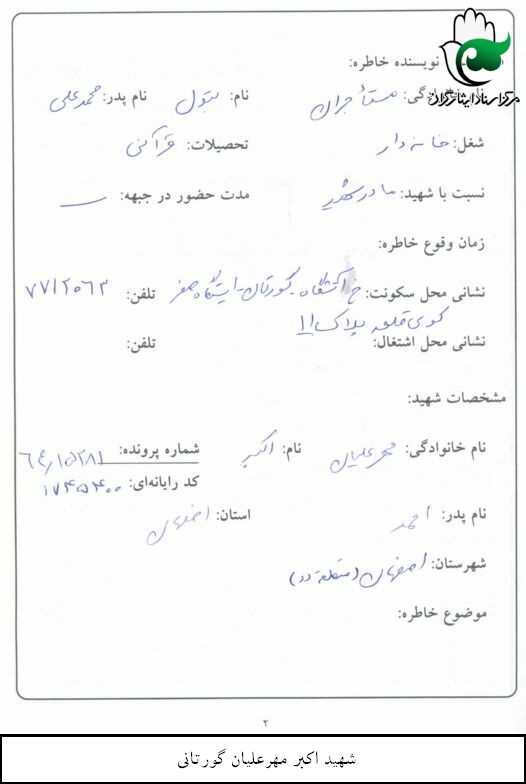 مرکز اسناد ایثارگران
نویسنده خاطره:
نام خانوادگی: مستأجران نام: بتول نام پدر: محمدعلی
شغل: خانه دار تحصیلات: قرآنی
نسبت با شهید: مادر شهید مدت حضور در جبهه: ــ
زمان وقوع خاطره:
نشانی محل سکونت: خ آتشگاه - گورتان - ایستگاه صفر تلفن: ۷۷۱۲۰۶۳
کوی قلعه پلاک ۱۱
نشانی محل اشتغال: تلفن:
مشخصات شهید:
نام خانوادگی: مهرعلیان نام: اکبر شماره پرونده:
کد رایانه‌ای: ۱۷۴۵۴۰۰
نام پدر: احمد استان: اصفهان
شهرستان: اصفهان (منطقه دو)
موضوع خاطره:
۲
شهید اکبر مهرعلیان گورتانی